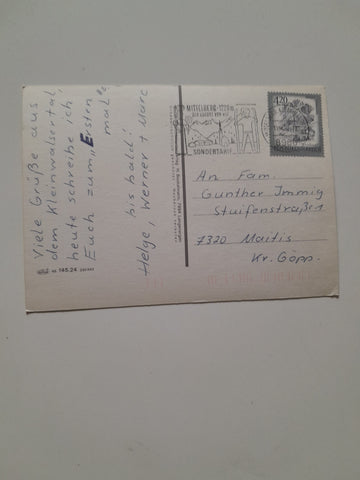 Viele Grüße aus
dem Kleinwalsertal,
heute schreibe ich
Euch zum „Ersten
mal"
bis bald!
Helge, Werner + Marc
Nr. 145.24
MITTELBERG·1220m
SONDERTARIF
4.20
An Fam.
Gunther Immig
Stuifenstraße 1
7320 Maitis
Kr. Göpp.